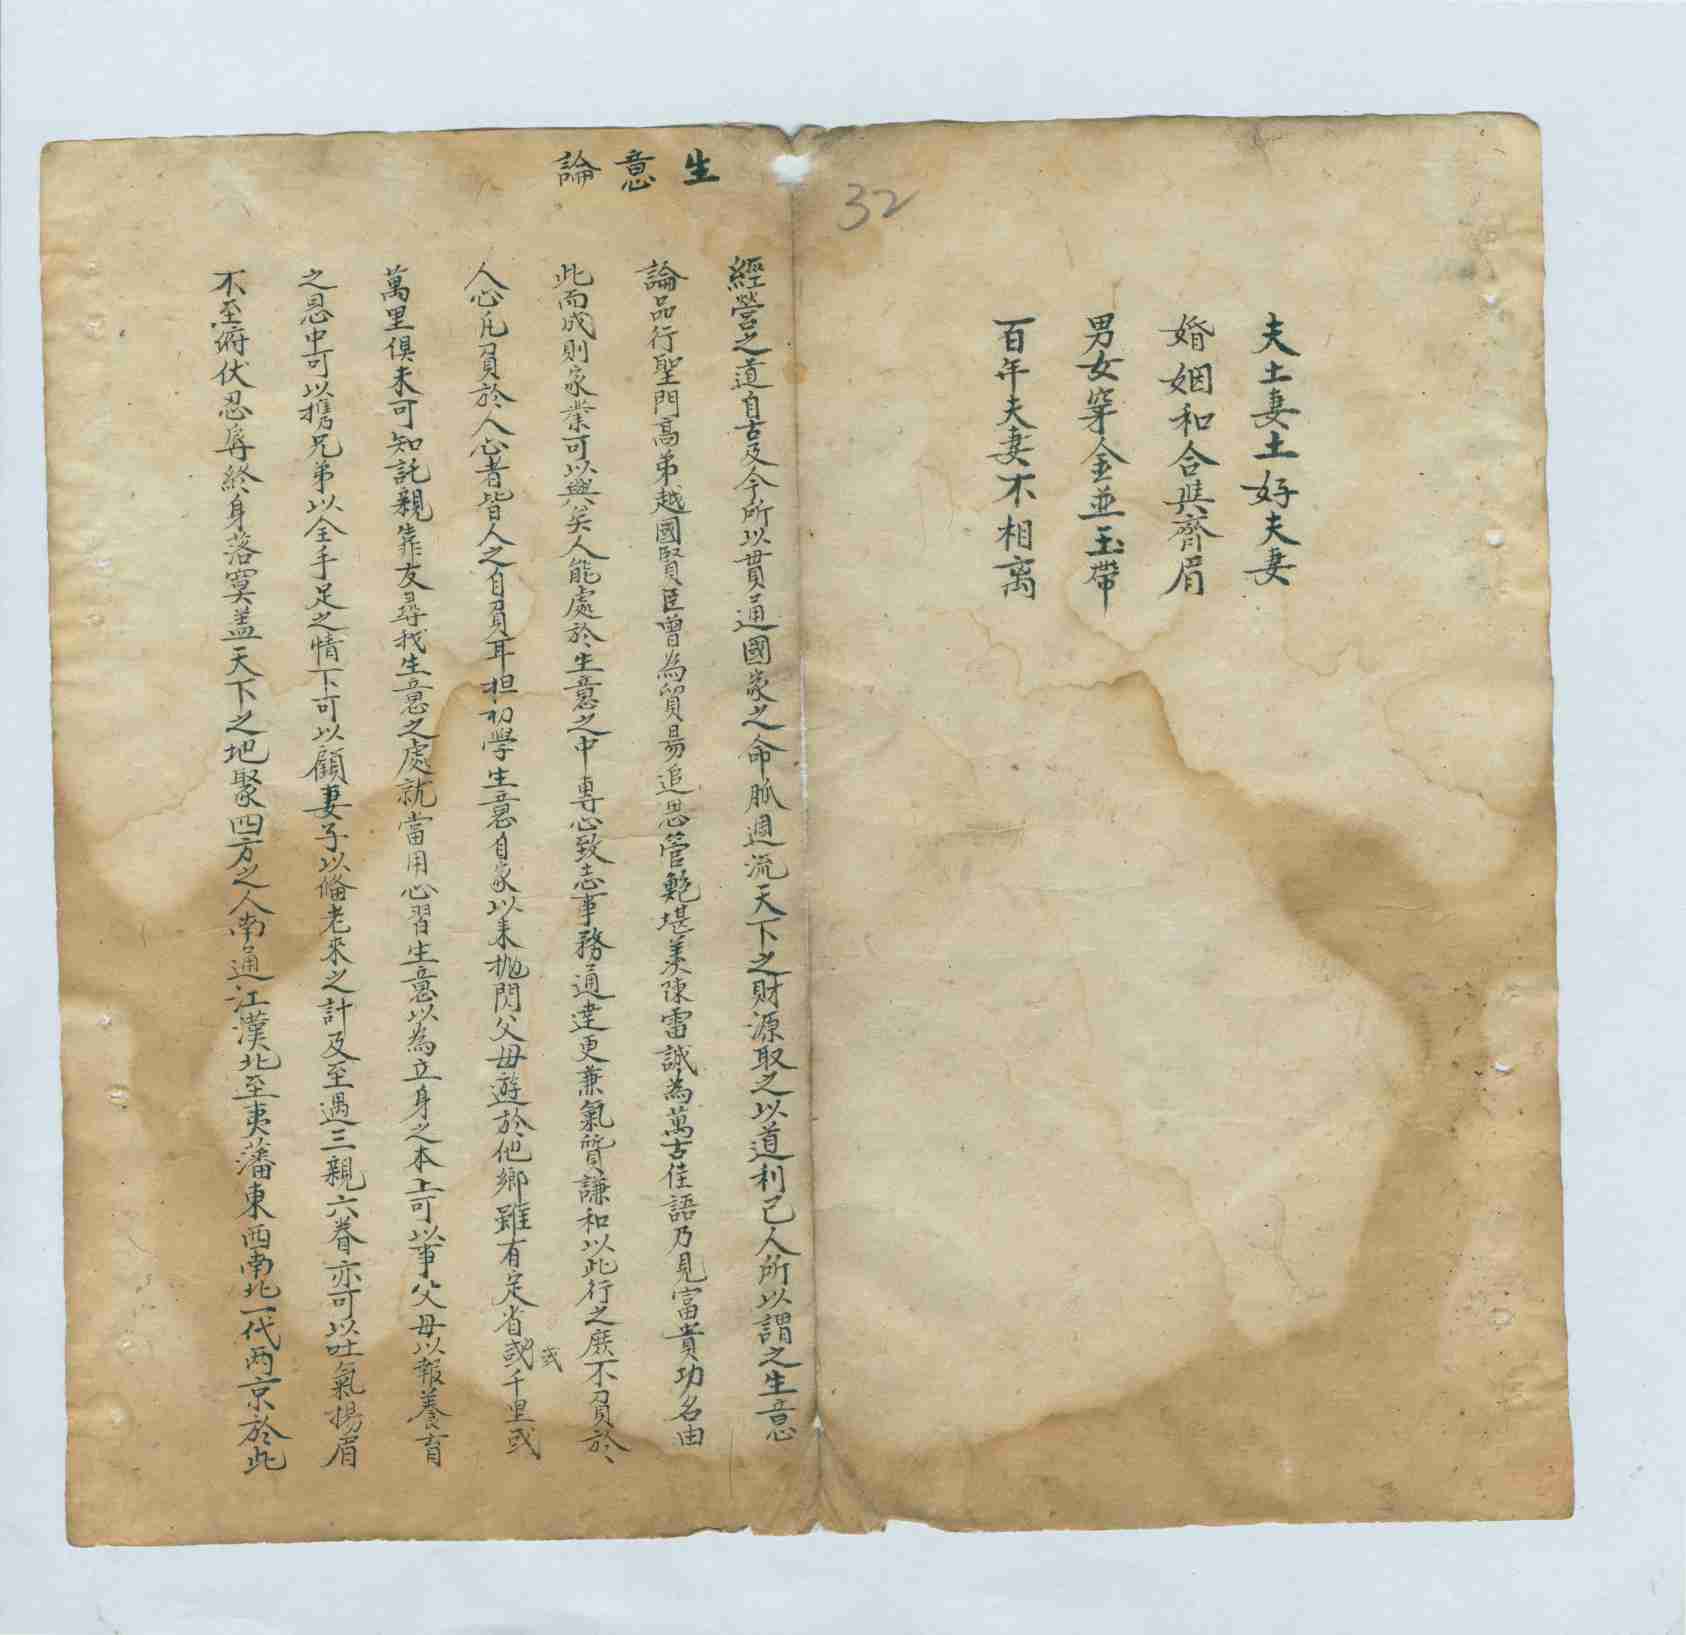 夫土妻土好夫妻
婚姻和合與齊眉
男女穿金並玉帶
百年夫妻不相离
32
生意論
經營之道自古及今所以貫通國家之命脈週流天下之財源取之以道利己人所以謂之生意
論品行聖門高弟越國賢臣曾為貿易追思管鮑堪羡陳雷誠為萬古佳語乃見富貴功名由
此而成則家業可以興矣人能處於生意之中專心致志事務通達更兼氣質謙和以此行之庶不負於
人心凡負於人心者皆人之自負耳担初學生意自家以来抛閃父母遊於他鄉雖有定省或千里或
或
萬里俱未可知託親靠友尋找生意之處就當用心習生意以為立身之本上可以事父母以報養育
之恩中可以携兄弟以全手足之情下可以顧妻子以俻老來之計及至遇三親六眷亦可以吐氣揚眉
不至俯伏忍辱終身落寞盖天下之地聚四方之人南通江漢北至夷藩東西南北一代两京於此